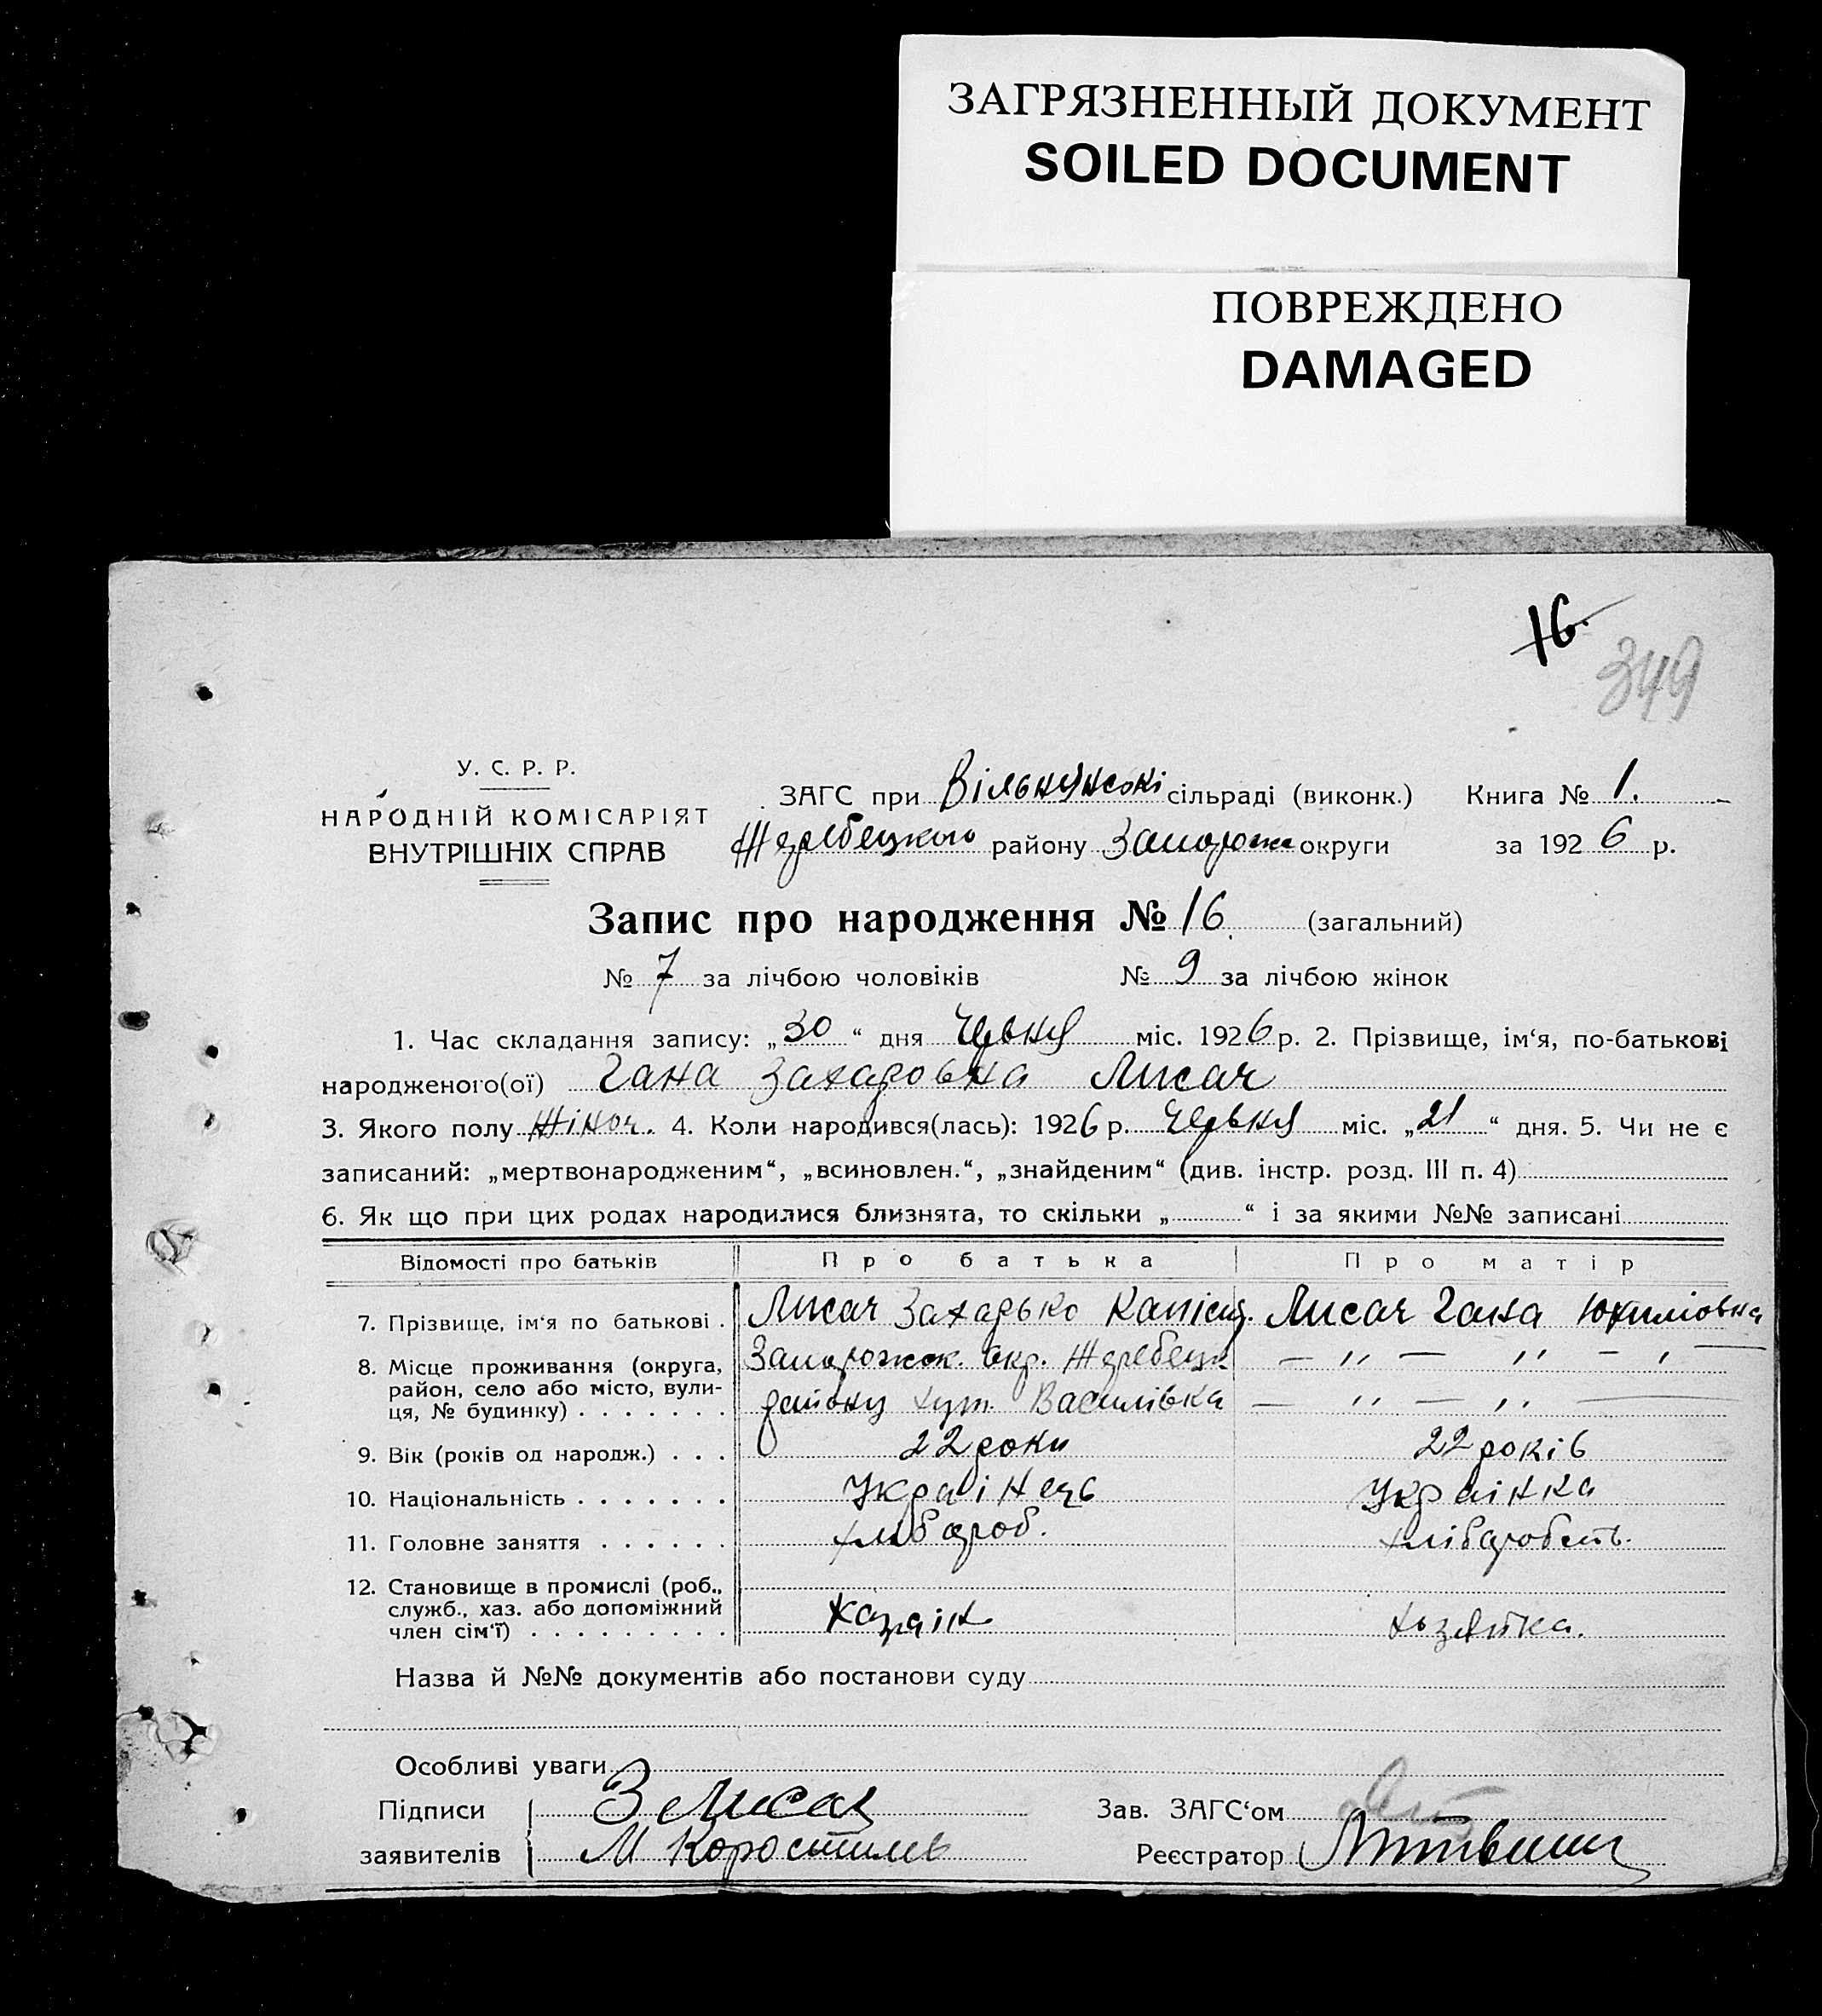 ЗАГРЯЗНЕННЫЙ ДОКУМЕНТ
SOILED DOCUMENT
ПОВРЕЖДЕНО
DAMAGED
16.
349
У. С. Р. Р.
НАРОДНІЙ КОМІСАРІЯТ
ВНУТРІШНІХ СПРАВ
ЗАГС при Вільнянскі сільраді (виконк.) Книга № 1.
Жеребецкого району Запорожс округи за 1926 р.
Запис про народження № 16. (загальний)
№ 7 за лічбою чоловіків № 9 за лічбою жінок
1. Час складання запису: „30“ дня Червня міс. 1926 р. 2. Прізвище, ім‘я, по-батькові
народженого(ої) Гана Захаровна Лисач
3. Якого полу жіноч. 4. Коли народився(лась): 1926 р. Червня міс. „21“ дня. 5. Чи не є
записаний: „мертвонародженим“, „всиновлен.“, „знайденим“ (див. інстр. розд. III п. 4)
6. Як що при цих родах народилися близнята, то скільки „ “ і за якими №№ записані
Відомості про батьків Про батька Про матір
7. Прізвище, ім‘я по батькові . Лисач Захарько Лисач Гана Юхимовна
8. Місце проживання (округа, район, село або місто, вули- ця, № будинку) . . . . . . .
Запорожск. окр. Жеребецк — ,, — ,, — , —
району хут. Василівка — ,, — ,, —
9. Вік (років од народж.) . . . 22 роки 22 років
10. Національність . . . . . . . Украінець Украінка
11. Головне заняття . . . . . . хлібороб. хліборобств.
12. Становище в промислі (роб., служб., хаз. або допоміжний член сім‘ї) . . . . . . . . .
хазяін хозяйка.
Назва й №№ документів або постанови суду
Особливі уваги
Підписи З Лисач Зав. ЗАГС‘ом
заявителів М Коростиль Реєстратор Литвин